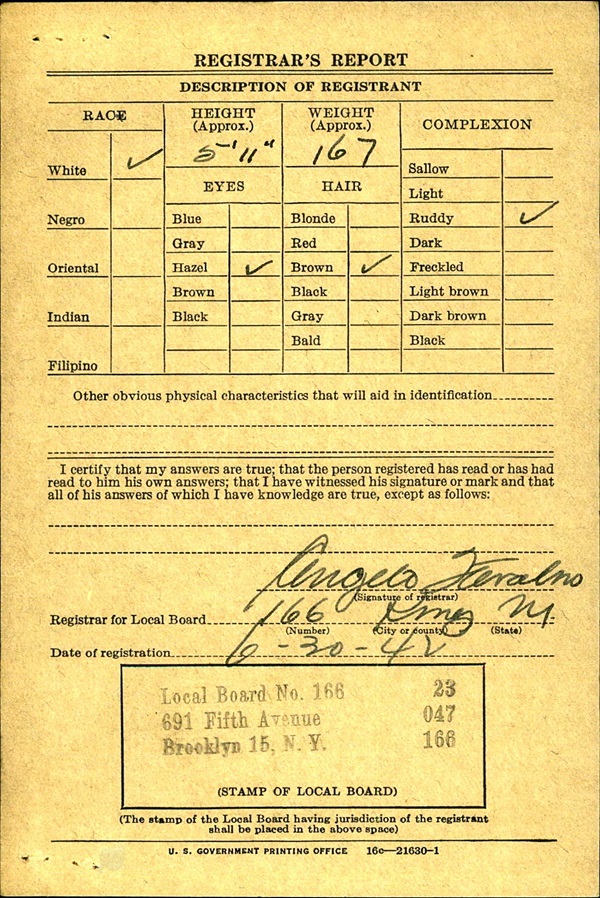 REGISTRAR'S REPORT
DESCRIPTION OF REGISTRANT
RACE
HEIGHT
(Approx.)
WEIGHT
(Approx.)
COMPLEXION
5'11"
167
White ✓
Negro
Oriental
Indian
Filipino
EYES
Blue
Gray
Hazel ✓
Brown
Black
HAIR
Blonde
Red
Brown ✓
Black
Gray
Bald
Sallow
Light
Ruddy ✓
Dark
Freckled
Light brown
Dark brown
Black
Other obvious physical characteristics that will aid in identification
I certify that my answers are true; that the person registered has read or has had
read to him his own answers; that I have witnessed his signature or mark and that
all of his answers of which I have knowledge are true, except as follows:
Angelo
(Signature of registrar)
Registrar for Local Board 166 Kings
(Number) (City or county) (State)
Date of registration 6-30-42
Local Board No. 166 23
691 Fifth Avenue 047
Brooklyn 15, N. Y. 166
(STAMP OF LOCAL BOARD)
(The stamp of the Local Board having jurisdiction of the registrant
shall be placed in the above space)
U. S. GOVERNMENT PRINTING OFFICE 16c—21630-1